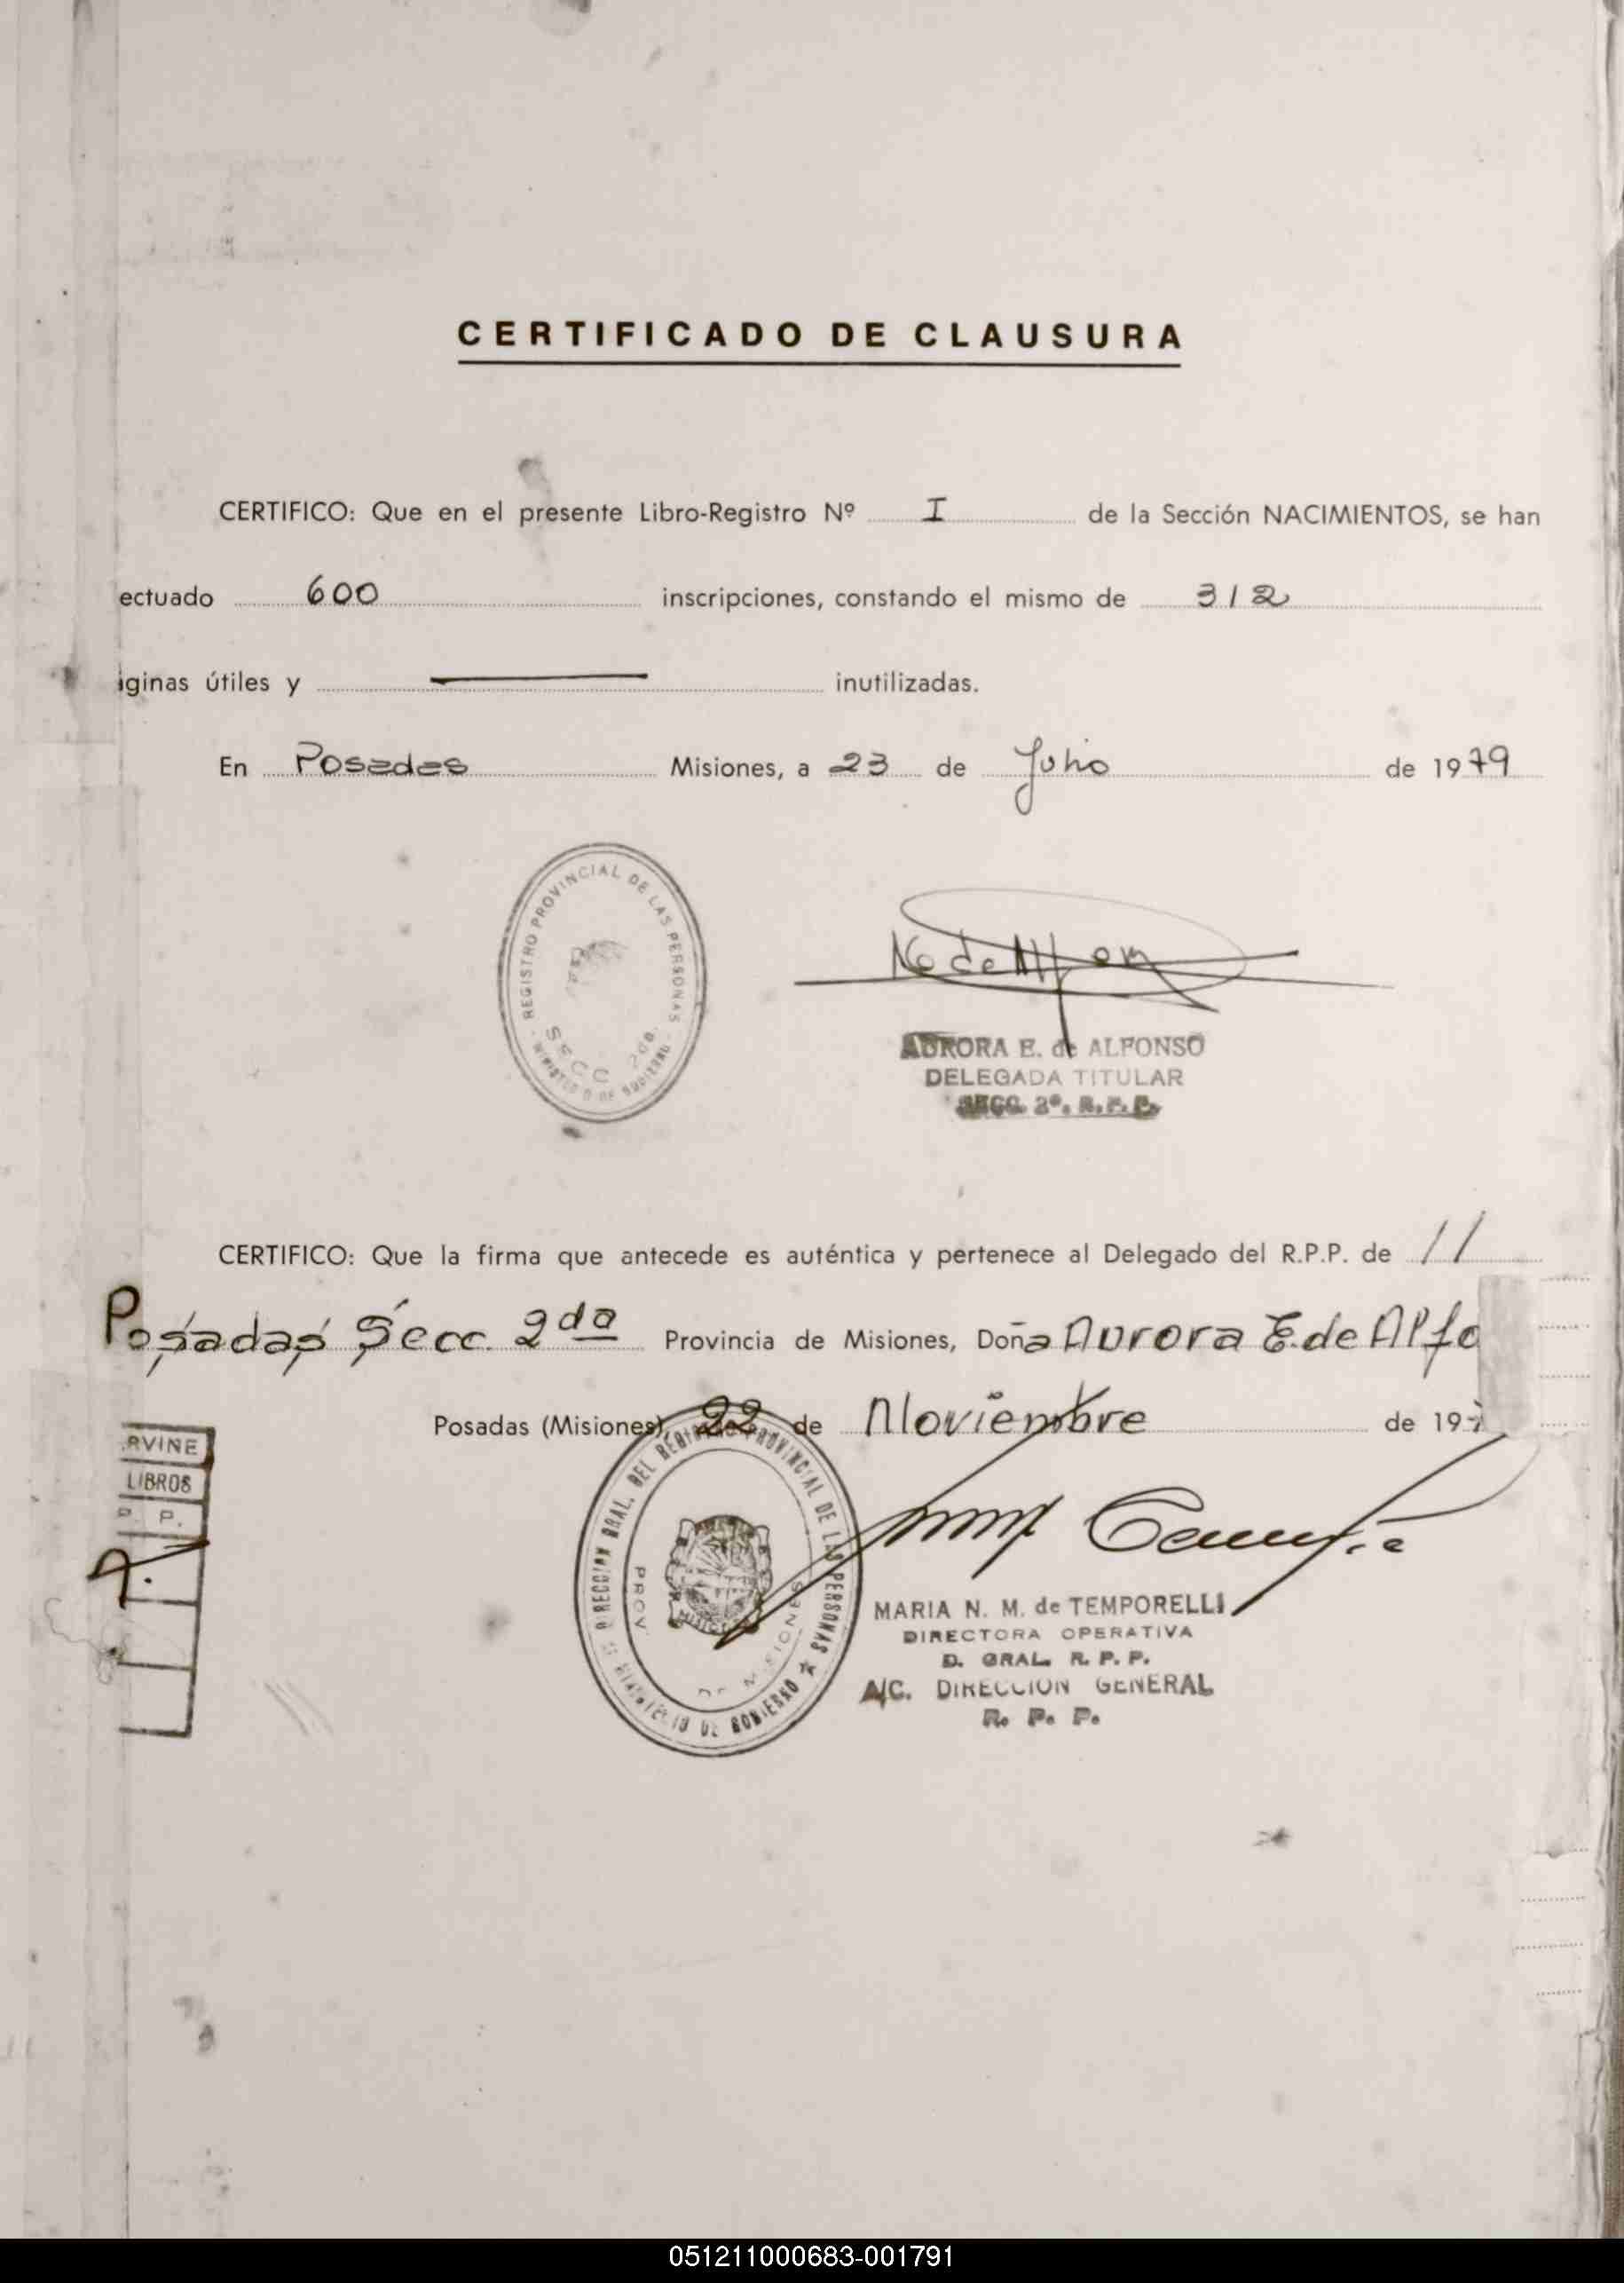 CERTIFICADO DE CLAUSURA
CERTIFICO: Que en el presente Libro-Registro Nº I de la Sección NACIMIENTOS, se han
ectuado 600 inscripciones, constando el mismo de 312
ginas útiles y inutilizadas.
En Posadas Misiones, a 23 de Julio de 1979
REGISTRO PROVINCIAL DE LAS PERSONAS
MINISTERIO DE GOBIERNO
SECC 2da.
AURORA E. de ALFONSO
DELEGADA TITULAR
SECC. 2º. R. P. P.
CERTIFICO: Que la firma que antecede es auténtica y pertenece al Delegado del R.P.P. de //
Posadas Secc. 2da Provincia de Misiones, Doña Aurora E. de Alfo
Posadas (Misiones), 22 de Noviembre de 197
RVINE
LIBROS
P. P.
DIRECCION GRAL. DEL REGISTRO PROVINCIAL DE LAS PERSONAS
MINISTERIO DE GOBIERNO
PROV. DE MISIONES
MARIA N. M. de TEMPORELLI
DIRECTORA OPERATIVA
D. GRAL. R. P. P.
A/C. DIRECCION GENERAL
R. P. P.
051211000683-001791